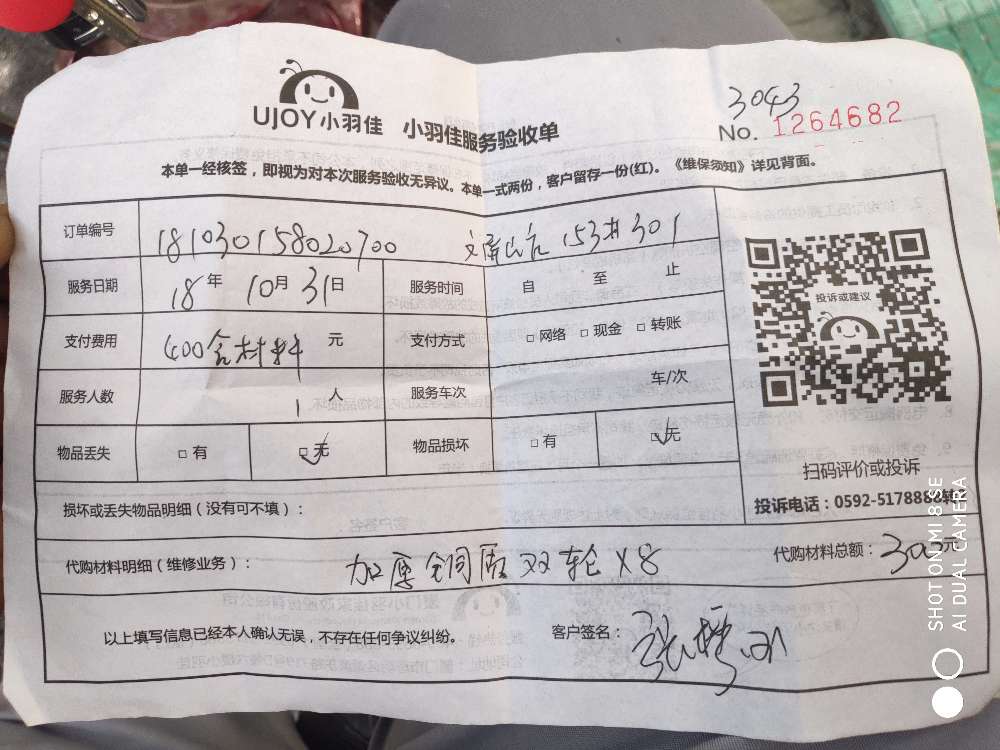 UJOY小羽佳 小羽佳服务验收单
3043
No. 1264682
本单一经核签，即视为对本次服务验收无异议。本单一式两份，客户留存一份(红)。《维保须知》详见背面。
订单编号 181030158020700 153# 301
服务日期 18年 10月 31日 服务时间 自 至 止
支付费用 400含材料 元 支付方式 □网络 □现金 □转账
服务人数 1 人 服务车次 车/次
物品丢失 □有 □无 物品损坏 □有 □无
投诉或建议
扫码评价或投诉
投诉电话：0592-5178888转
损坏或丢失物品明细（没有可不填）：
代购材料明细（维修业务）： 加厚铜质双轮 X8 代购材料总额：300元
以上填写信息已经本人确认无误，不存在任何争议纠纷。 客户签名： 张
SHOT ON MI 8SE
AI DUAL CAMERA